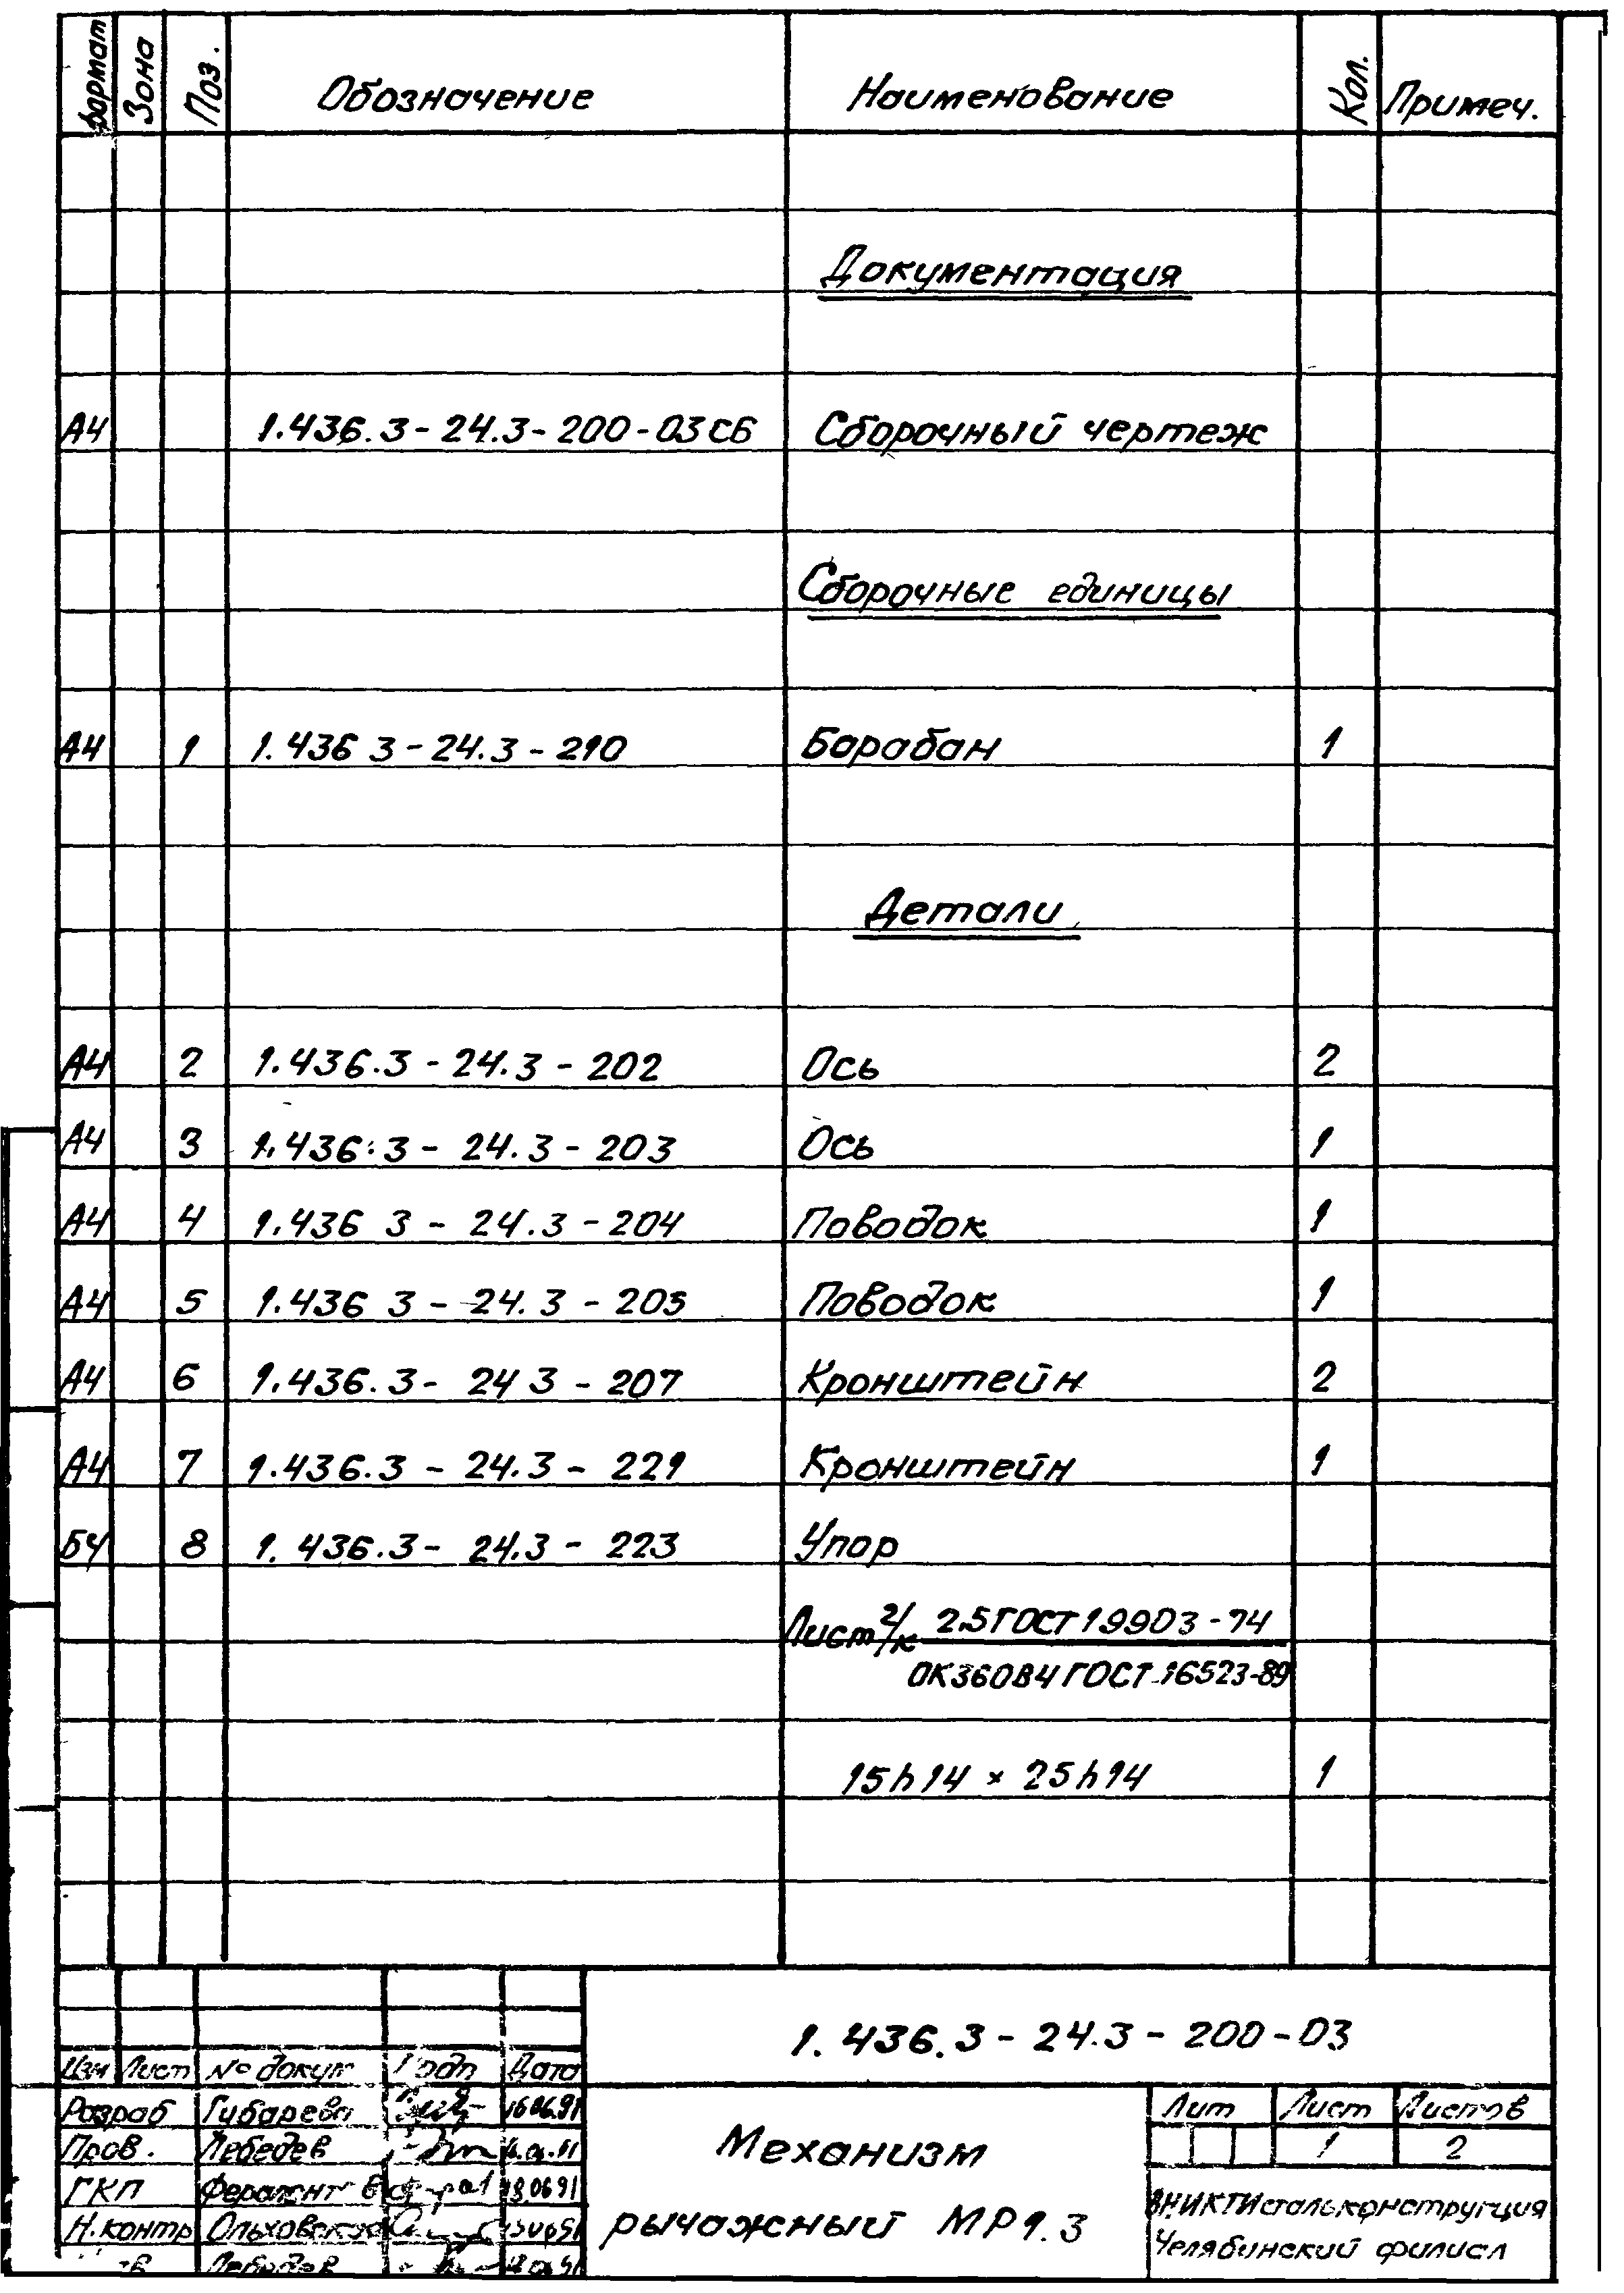 Формат Зона Поз. Обозначение Наименование Кол. Примеч.
Документация
А4 1.436.3-24.3-200-03СБ Сборочный чертеж
Сборочные единицы
А4 1 1.436 3-24.3-210 Барабан 1
Детали
А4 2 1.436.3-24.3-202 Ось 2
А4 3 1.436.3-24.3-203 Ось 1
А4 4 1.436 3-24.3-204 Поводок 1
А4 5 1.436 3-24.3-205 Поводок 1
А4 6 1.436.3-24 3-207 Кронштейн 2
А4 7 1.436.3-24.3-221 Кронштейн 1
БЧ 8 1.436.3-24.3-223 Упор
Лист г/к 2.5 ГОСТ 19903-74
ОК360В4 ГОСТ 16523-89
15h14 × 25h14 1
1.436.3-24.3-200-03
Изм Лист № докум Подп Дата
Разраб Губарева 16.06.91
Пров. Лебедев
ГКП 13.0691
Н.контр Ольховская
Лебедев
Механизм
рычажный МР1.3
Лит Лист Листов
1 2
ВНИКТИстальконструкция
Челябинский филиал